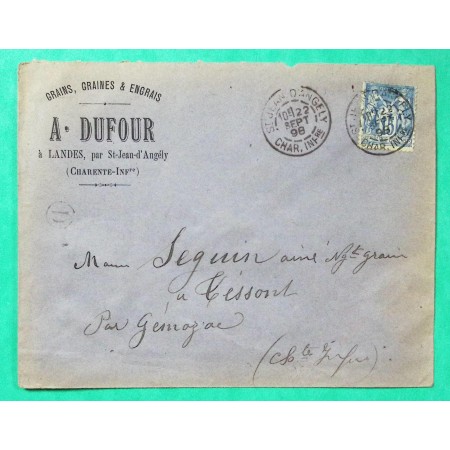 GRAINS, GRAINES & ENGRAIS
A. DUFOUR
à LANDES, par St-Jean-d'Angély
(CHARENTE-INFre)
ST JEAN D'ANGELY
22
SEPT
98
CHAR. INFRE
Seguin ainé Ngt grain
à Tessont
Par Gémozac
(Chte Infre)